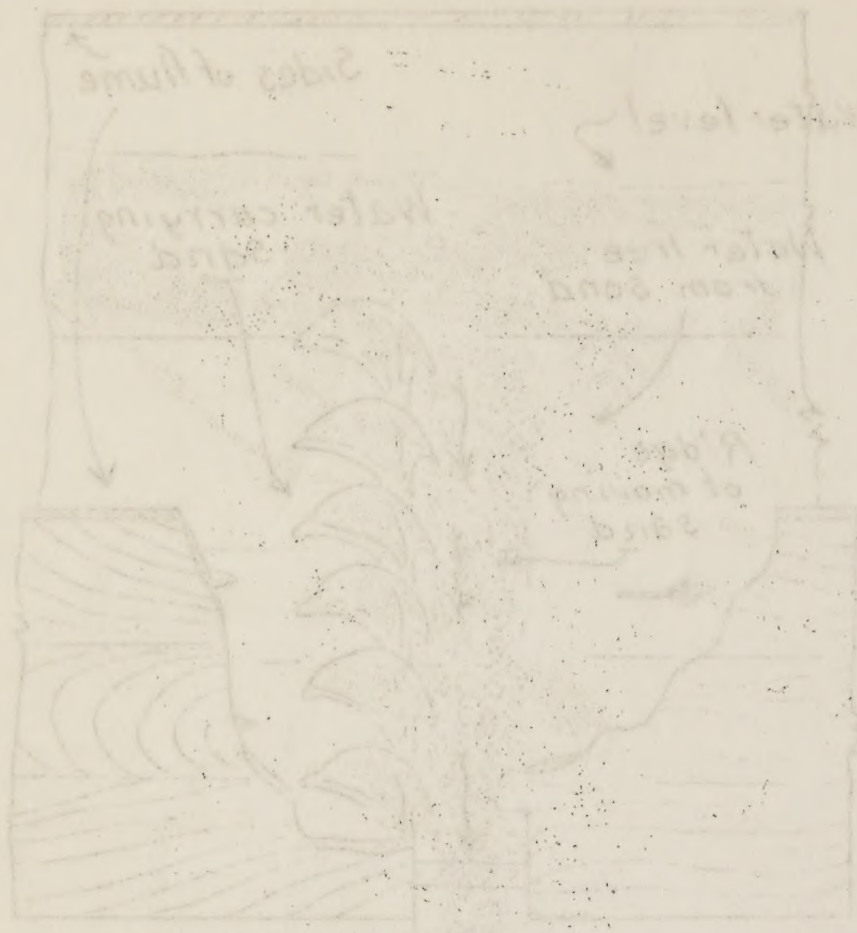 Sides of flume
Water level
Water carrying
sand
Water free
from sand
Ridge
of moving
sand